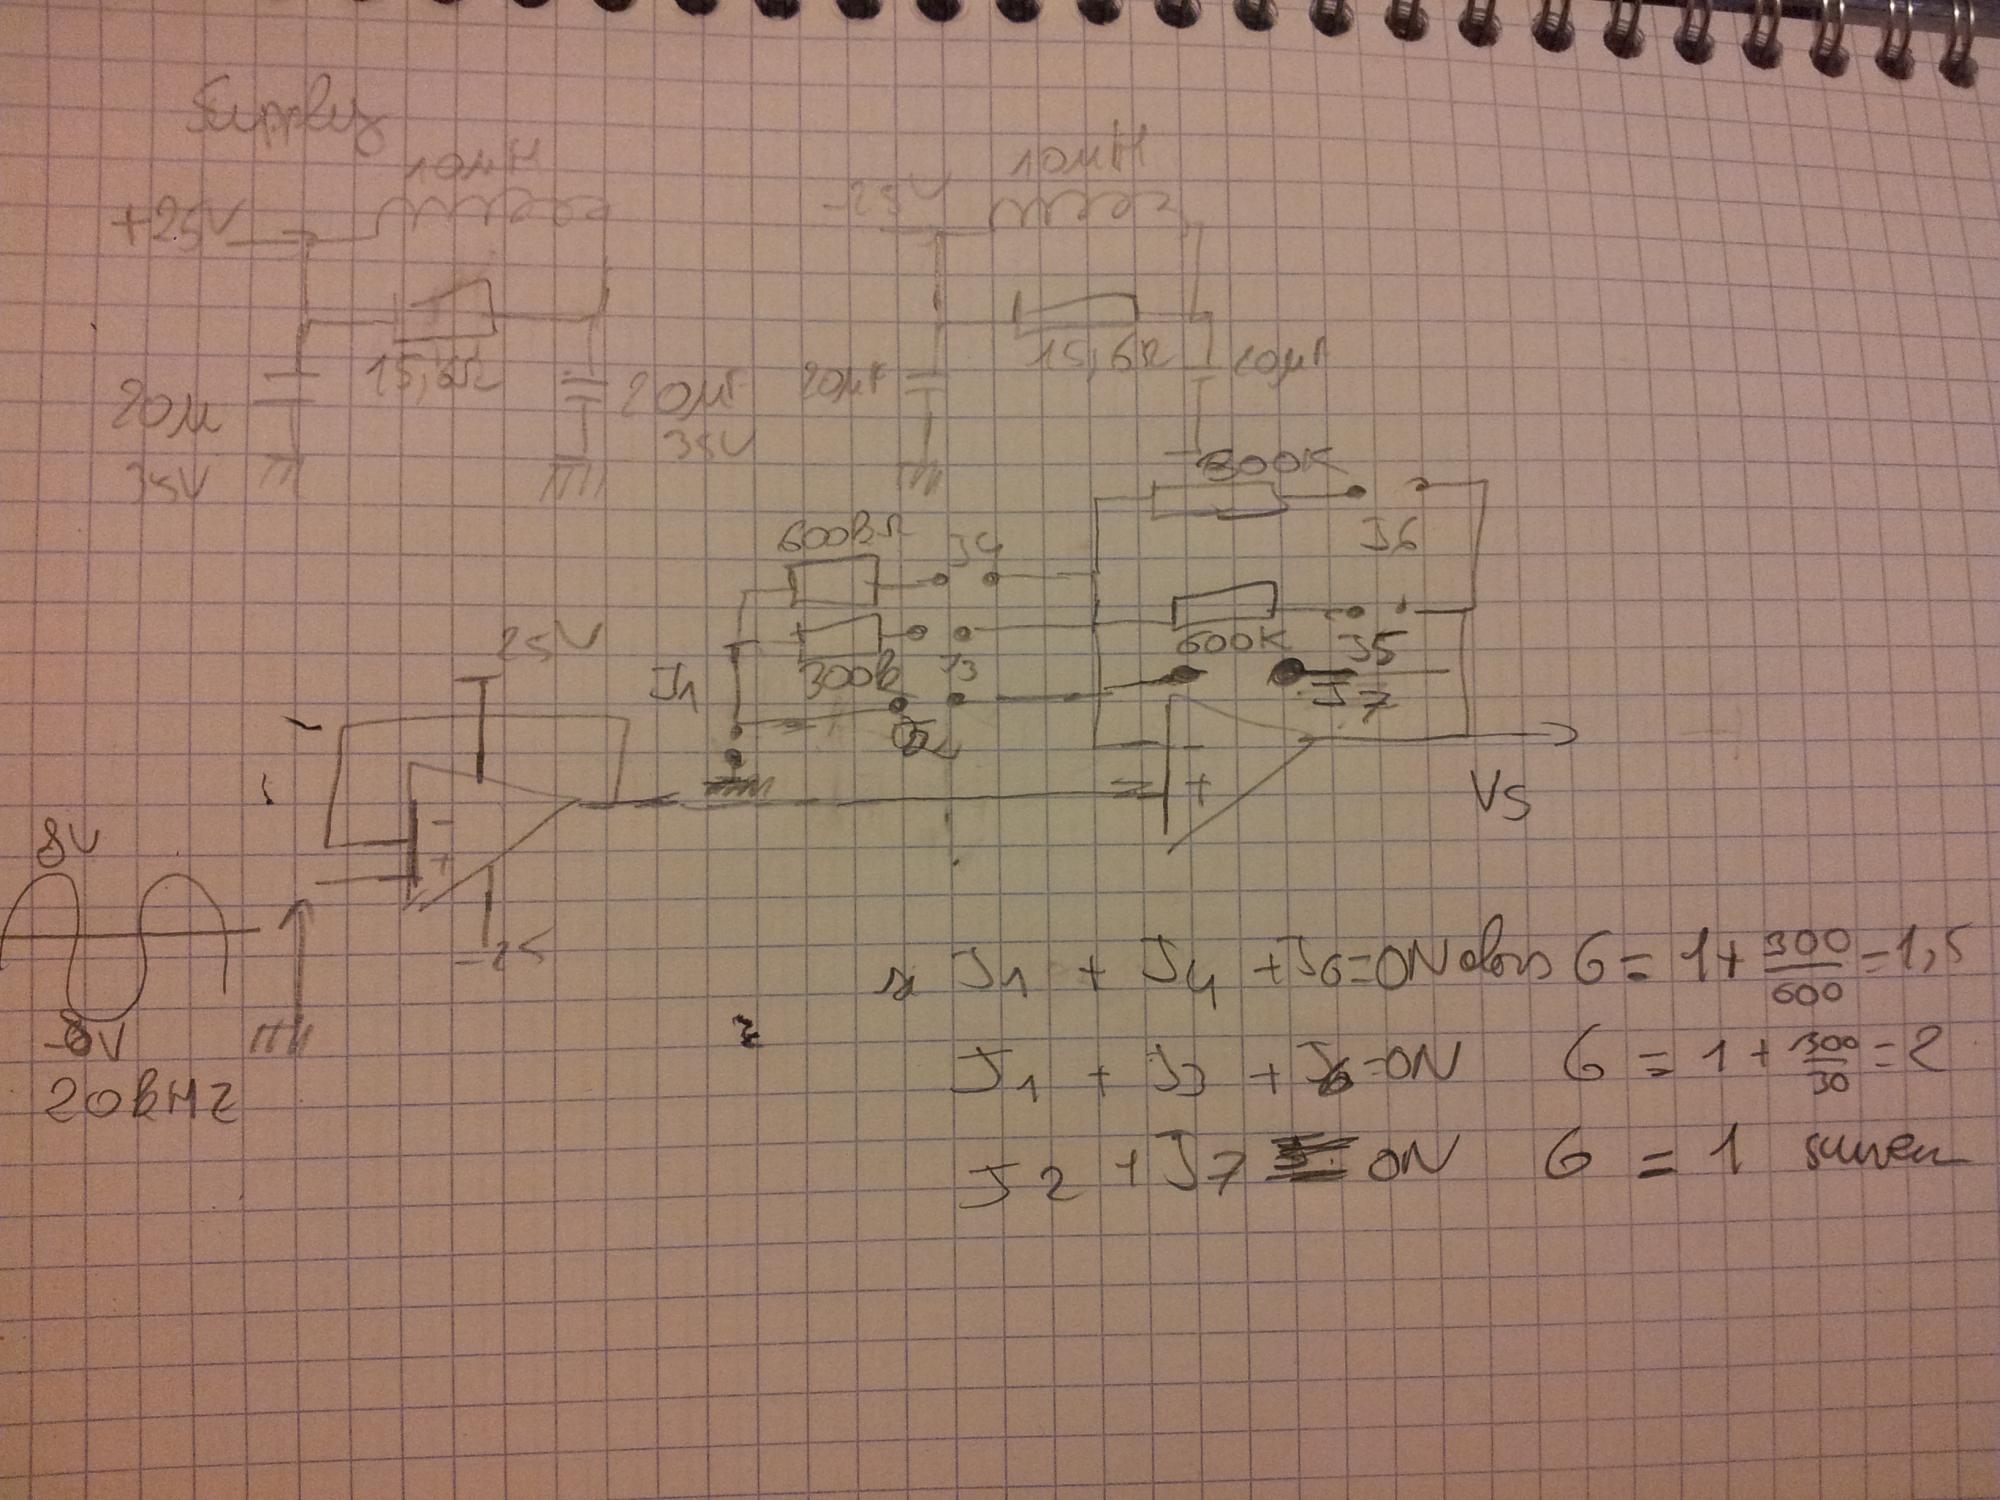 Supply
10µH
10µH
+25V
-25V
15,6Ω
15,6Ω
20µ
35V
20µF
35V
20µF
20µF
300K
600kΩ
J4
J6
25V
J1
300k
J3
600K
J5
J7
J2
-
+
-
+
VS
8V
-25
-8V
20kHZ
si J1 + J4 + J6=ON alors G = 1+ 300/600 = 1,5
J1 + J3 + J6=ON G = 1 + 300/30 = 2
J2 + J7 ON G = 1